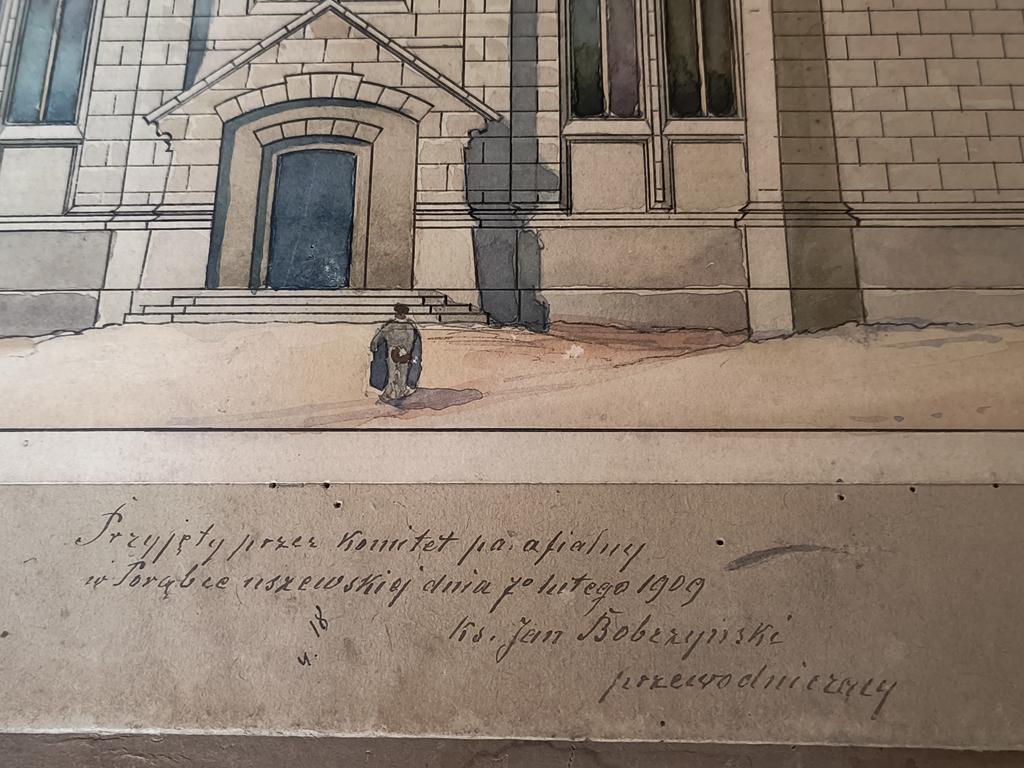 Przyjęty przez Komitet parafialny
w Porąbce uszewskiej dnia 7º lutego 1909
ks. Jan Bobrzyński
przewodniczący
18